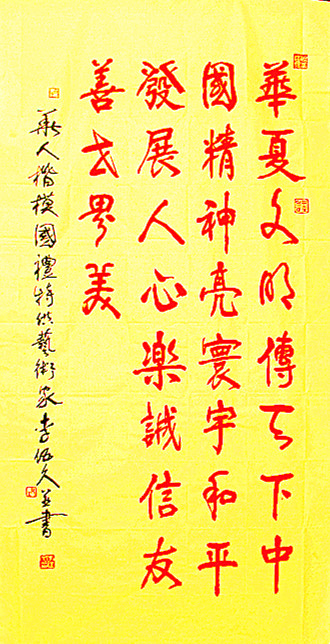 華夏文明傳天下中
國精神亮寰宇和平
發展人心楽誠信友
善世界美
華人楷模國禮特供藝術家李伍久並書